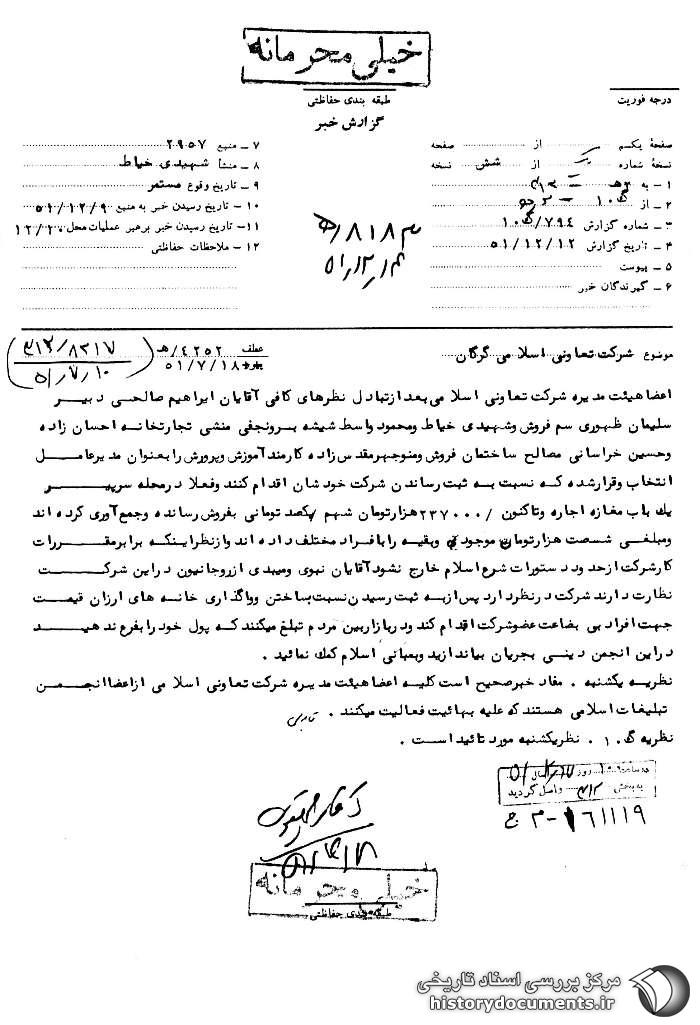 خیلی محرمانه
طبقه بندی حفاظتی
گزارش خبر
درجه فوریت
صفحهٔ یکم از صفحه
نسخهٔ شماره از شش نسخه
۱ – به
۲ – از
۳ – شماره گزارش ۱۰ﻫ/۷۹۴
۴ – تاریخ گزارش ۵۱/۱۲/۱۲
۵ – پیوست
۶ – گیرندگان خبر
۷ – منبع ۲۹۵۷
۸ – منشأ شهیدی خیاط
۹ – تاریخ وقوع مستمر
۱۰ – تاریخ رسیدن خبر به منبع ۵۱/۱۲/۹
۱۱ – تاریخ رسیدن خبر برهبر عملیات محل ۱۲/۱۰
۱۲ – ملاحظات حفاظتی
۸۱۸۳/ﻫ
موضوع شرکت تعاونی اسلامی گرگان
عطف ۴۲۵۲/ﻫ
۵۱/۷/۱۸
۳۱۲/۸۲۱۷
۵۱/۷/۱۰
اعضا هیئت مدیره شرکت تعاونی اسلامی بعد از تبادل نظرهای کافی آقایان ابراهیم صالحی دبیر
سلیمان ظهوری سم فروش وشهیدی خیاط ومحمود واسط شیشه برونجفی منشی تجارتخانه احسان زاده
وحسین خراسانی مصالح ساختمان فروش ومنوچهرمقدس زاده کارمند آموزش وپرورش را بعنوان مدیرعامل
انتخاب وقرارشده که نسبت به ثبت رساندن شرکت خودشان اقدام کنند وفعلا درمحله سرپیر
یک باب مغازه اجاره وتاکنون /۲۳۷۰۰۰هزارتومان سهم یکصد تومانی بفروش رسانده وجمع آوری کرده اند
ومبلغی شصت هزارتومان موجودی وبقیه را با فراد مختلف داده اند وازنظراینکه برابرمقررات
کارشرکت ازحدود دستورات شرع اسلام خارج نشود آقایان نبوی ومیبدی ازروحانیون دراین شرکت
نظارت دارند شرکت درنظردارد پس ازبه ثبت رسیدن نسبت بساختن وواگذاری خانه های ارزان قیمت
جهت افراد بی بضاعت عضوشرکت اقدام کند ودربازاربین مردم تبلغ میکنند که پول خود را بفرع ندهید
دراین انجمن دینی بجریان بیاندازید وبمبانی اسلام کمک نمائید .
نظریه یکشنبه . مفاد خبرصحیح است کلیه اعضا هیئت مدیره شرکت تعاونی اسلامی ازاعضا انجمن
تبلیغات اسلامی هستند که علیه بهائیت فعالیت میکنند .
نظریه ۱۰ﻫ . نظریکشنبه مورد تائید است .
به بخش ۳۱۲ واصل گردید
۱۶۱۱۱۹
خیلی محرمانه
طبقه بندی حفاظتی
مرکز بررسی اسناد تاریخی
historydocuments.ir